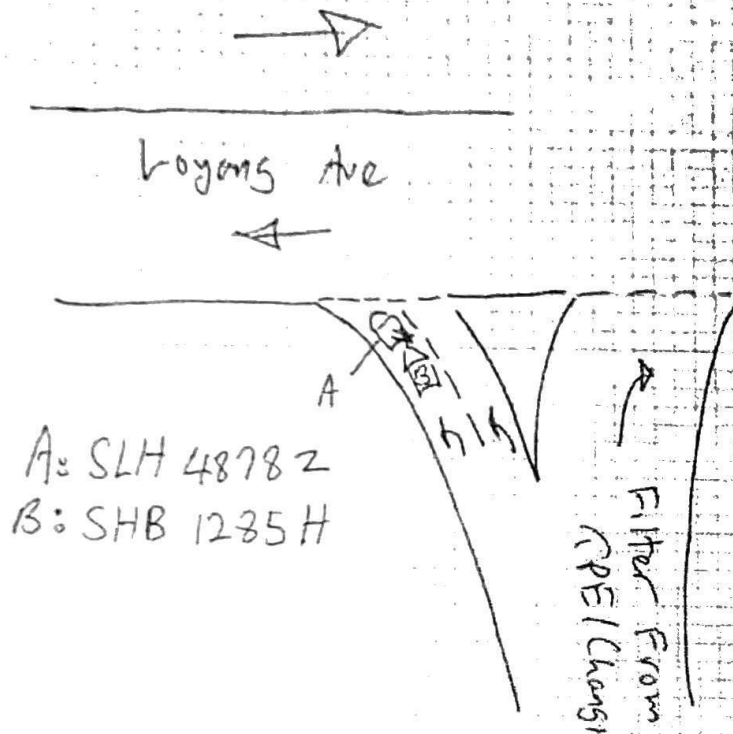 Loyang Ave
B
A
A: SLH 4878Z
B: SHB 1285H
Filter From
(PE/Changi